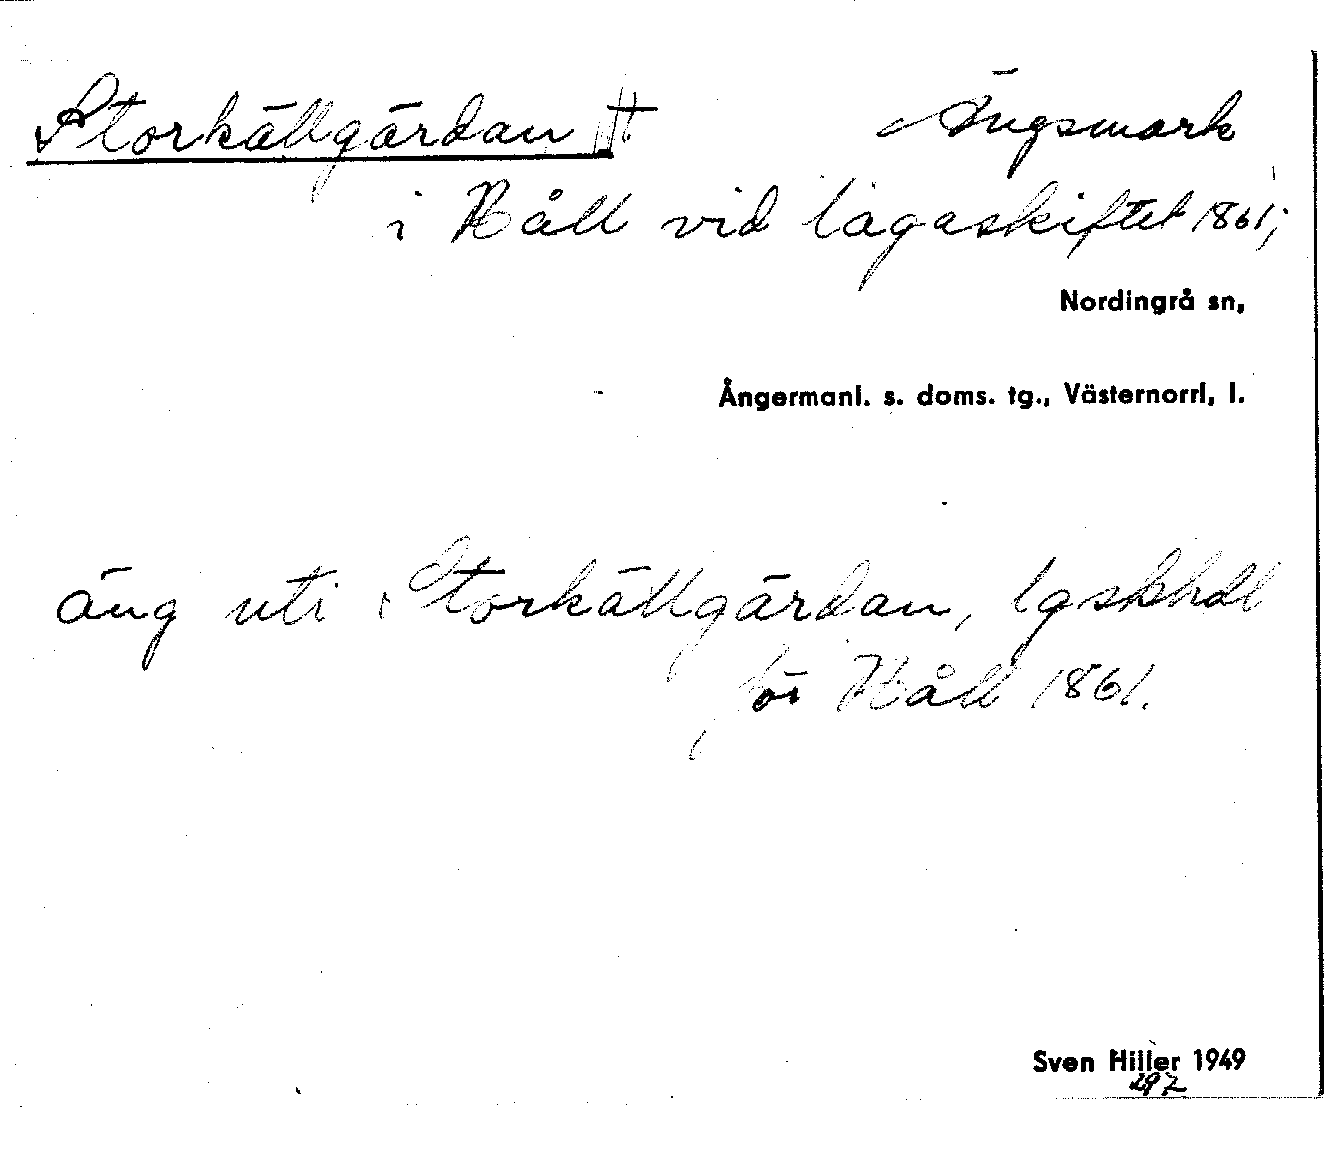 Storkällgärdan †† Ängsmark
i Håll vid lagaskiftet 1861;
Nordingrå sn,
Ångermanl. s. doms. tg., Västernorrl, l.
äng uti Storkällgärdan, lgskhdl
för Håll 1861.
Sven Hiller 1949
297